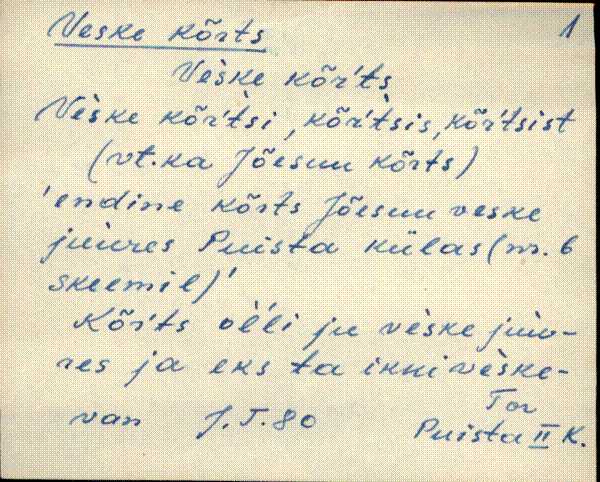 Veske kõrts 1
Vèske kõr'ts
Vèske kõr'tsi, kõr'tsis, kõr'tsist
(vt. ka Jõesuu kõrts)
'endine kõrts Jõesuu veske
juures Puista külas (nr. 6
skeemil)'
Kõr'ts òl'li ju vèske juu-
res ja eks ta ikki vèske-
van J.T. 80 Tor
Puista II K.